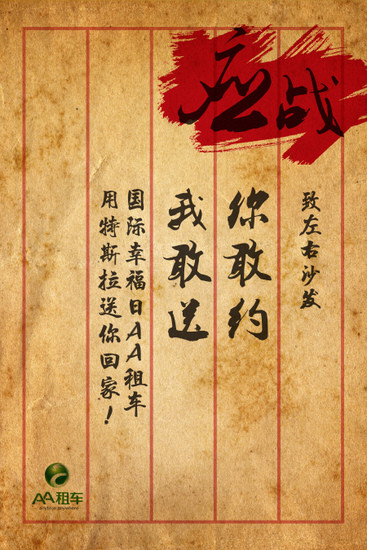 应战
致左右沙发
你敢约
我敢送
国际幸福日AA租车
用特斯拉送你回家！
AA租车